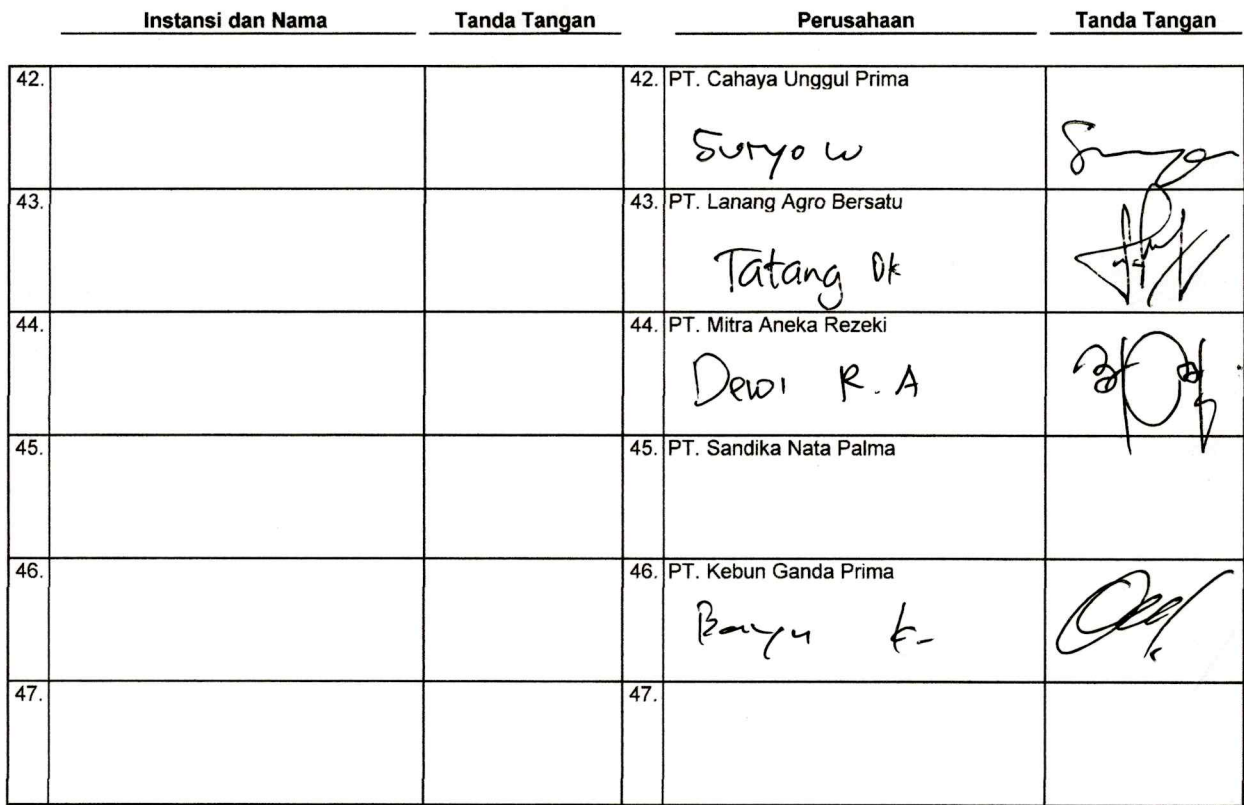 Instansi dan Nama Tanda Tangan Perusahaan Tanda Tangan
42. 42. PT. Cahaya Unggul Prima
Suryo W
43. 43. PT. Lanang Agro Bersatu
Tatang Dk
44. 44. PT. Mitra Aneka Rezeki
Dewi R. A
45. 45. PT. Sandika Nata Palma
46. 46. PT. Kebun Ganda Prima
Bayu K-
47. 47.